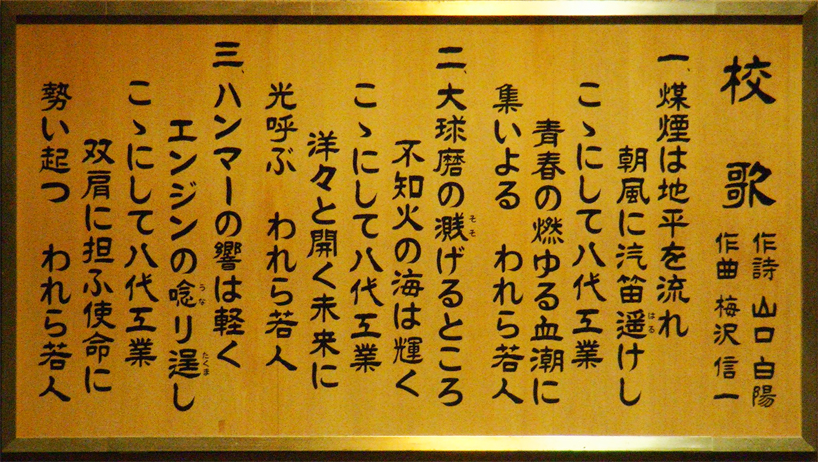 校歌
作詩 山口 白陽
作曲 梅沢 信一
一、煤煙は地平を流れ
朝風に汽笛遥けし
こゝにして八代工業
青春の燃ゆる血潮に
集いよる われら若人
二、大球磨の濺げるところ
不知火の海は輝く
こゝにして八代工業
洋々と開く未来に
光呼ぶ われら若人
三、ハンマーの響は軽く
エンジンの唸り逞し
こゝにして八代工業
双肩に担ふ使命に
勢い起つ われら若人
はる
そそ
うな
たくま